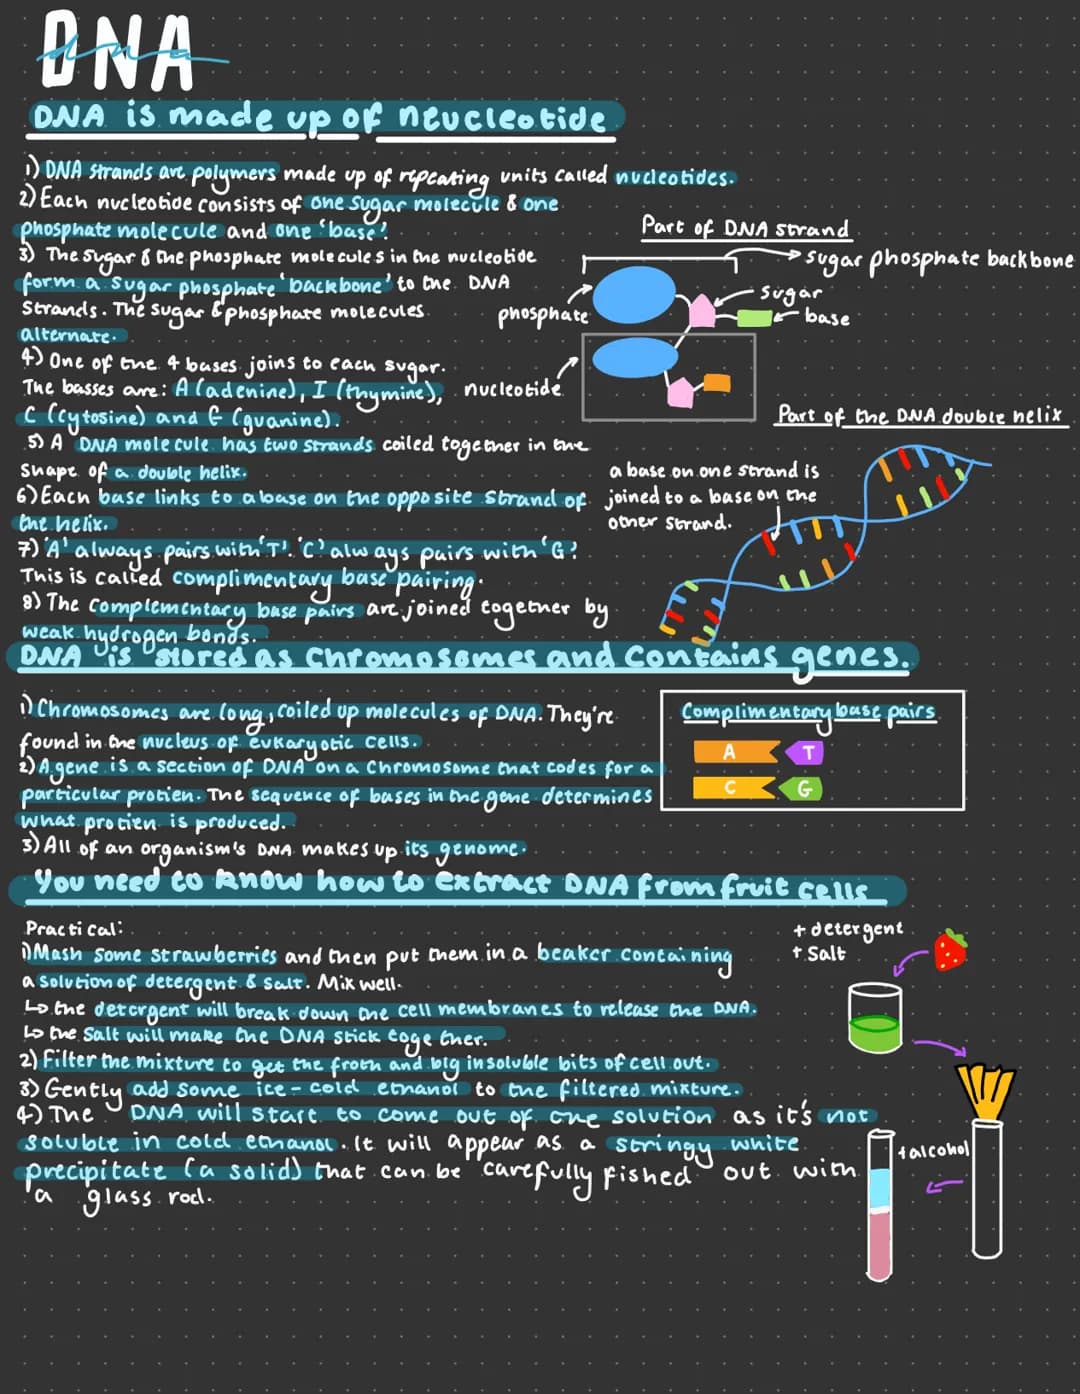 DNA
dna
DNA is made up of neucleotide
1) DNA strands are polymers made up of repeating units called nucleotides.
2) Each nucleotide consists of one sugar molecule & one
phosphate molecule and one 'base'.
3) The sugar & the phosphate molecules in the nucleotide
form a sugar phosphate 'backbone' to the DNA
Strands. The sugar & phosphate molecules
alternate.
4) One of the 4 bases joins to each sugar.
The basses are: A (adenine), T (thymine),
C (cytosine) and G (guanine).
5) A DNA molecule has two strands coiled together in the
shape of a double helix.
6) Each base links to a base on the opposite strand of
the helix.
7) 'A' always pairs with 'T'. 'C' always pairs with 'G'.
This is called complimentary base pairing.
8) The complementary base pairs are joined together by
weak hydrogen bonds.
Part of DNA strand
sugar phosphate backbone
sugar
base
phosphate
nucleotide
Part of the DNA double helix
a base on one strand is
joined to a base on the
other strand.
DNA is stored as chromosomes and contains genes.
1) Chromosomes are long, coiled up molecules of DNA. They're
found in the nucleus of eukaryotic cells.
2) A gene is a section of DNA on a chromosome that codes for a
particular protien. The sequence of bases in the gene determines
what protien is produced.
3) All of an organism's DNA makes up its genome.
Complimentary base pairs
A T
C G
You need to know how to extract DNA from fruit cells
Practical:
1) Mash some strawberries and then put them in a beaker containing
a solution of detergent & salt. Mix well.
↳ the detergent will break down the cell membranes to release the DNA.
↳ the salt will make the DNA stick together.
2) Filter the mixture to get the froth and big insoluble bits of cell out.
3) Gently add some ice-cold ethanol to the filtered mixture.
4) The DNA will start to come out of the solution as it's not
soluble in cold ethanol. It will appear as a stringy white
precipitate (a solid) that can be carefully fished out with
a glass rod.
+ detergent
+ Salt
+ alcohol